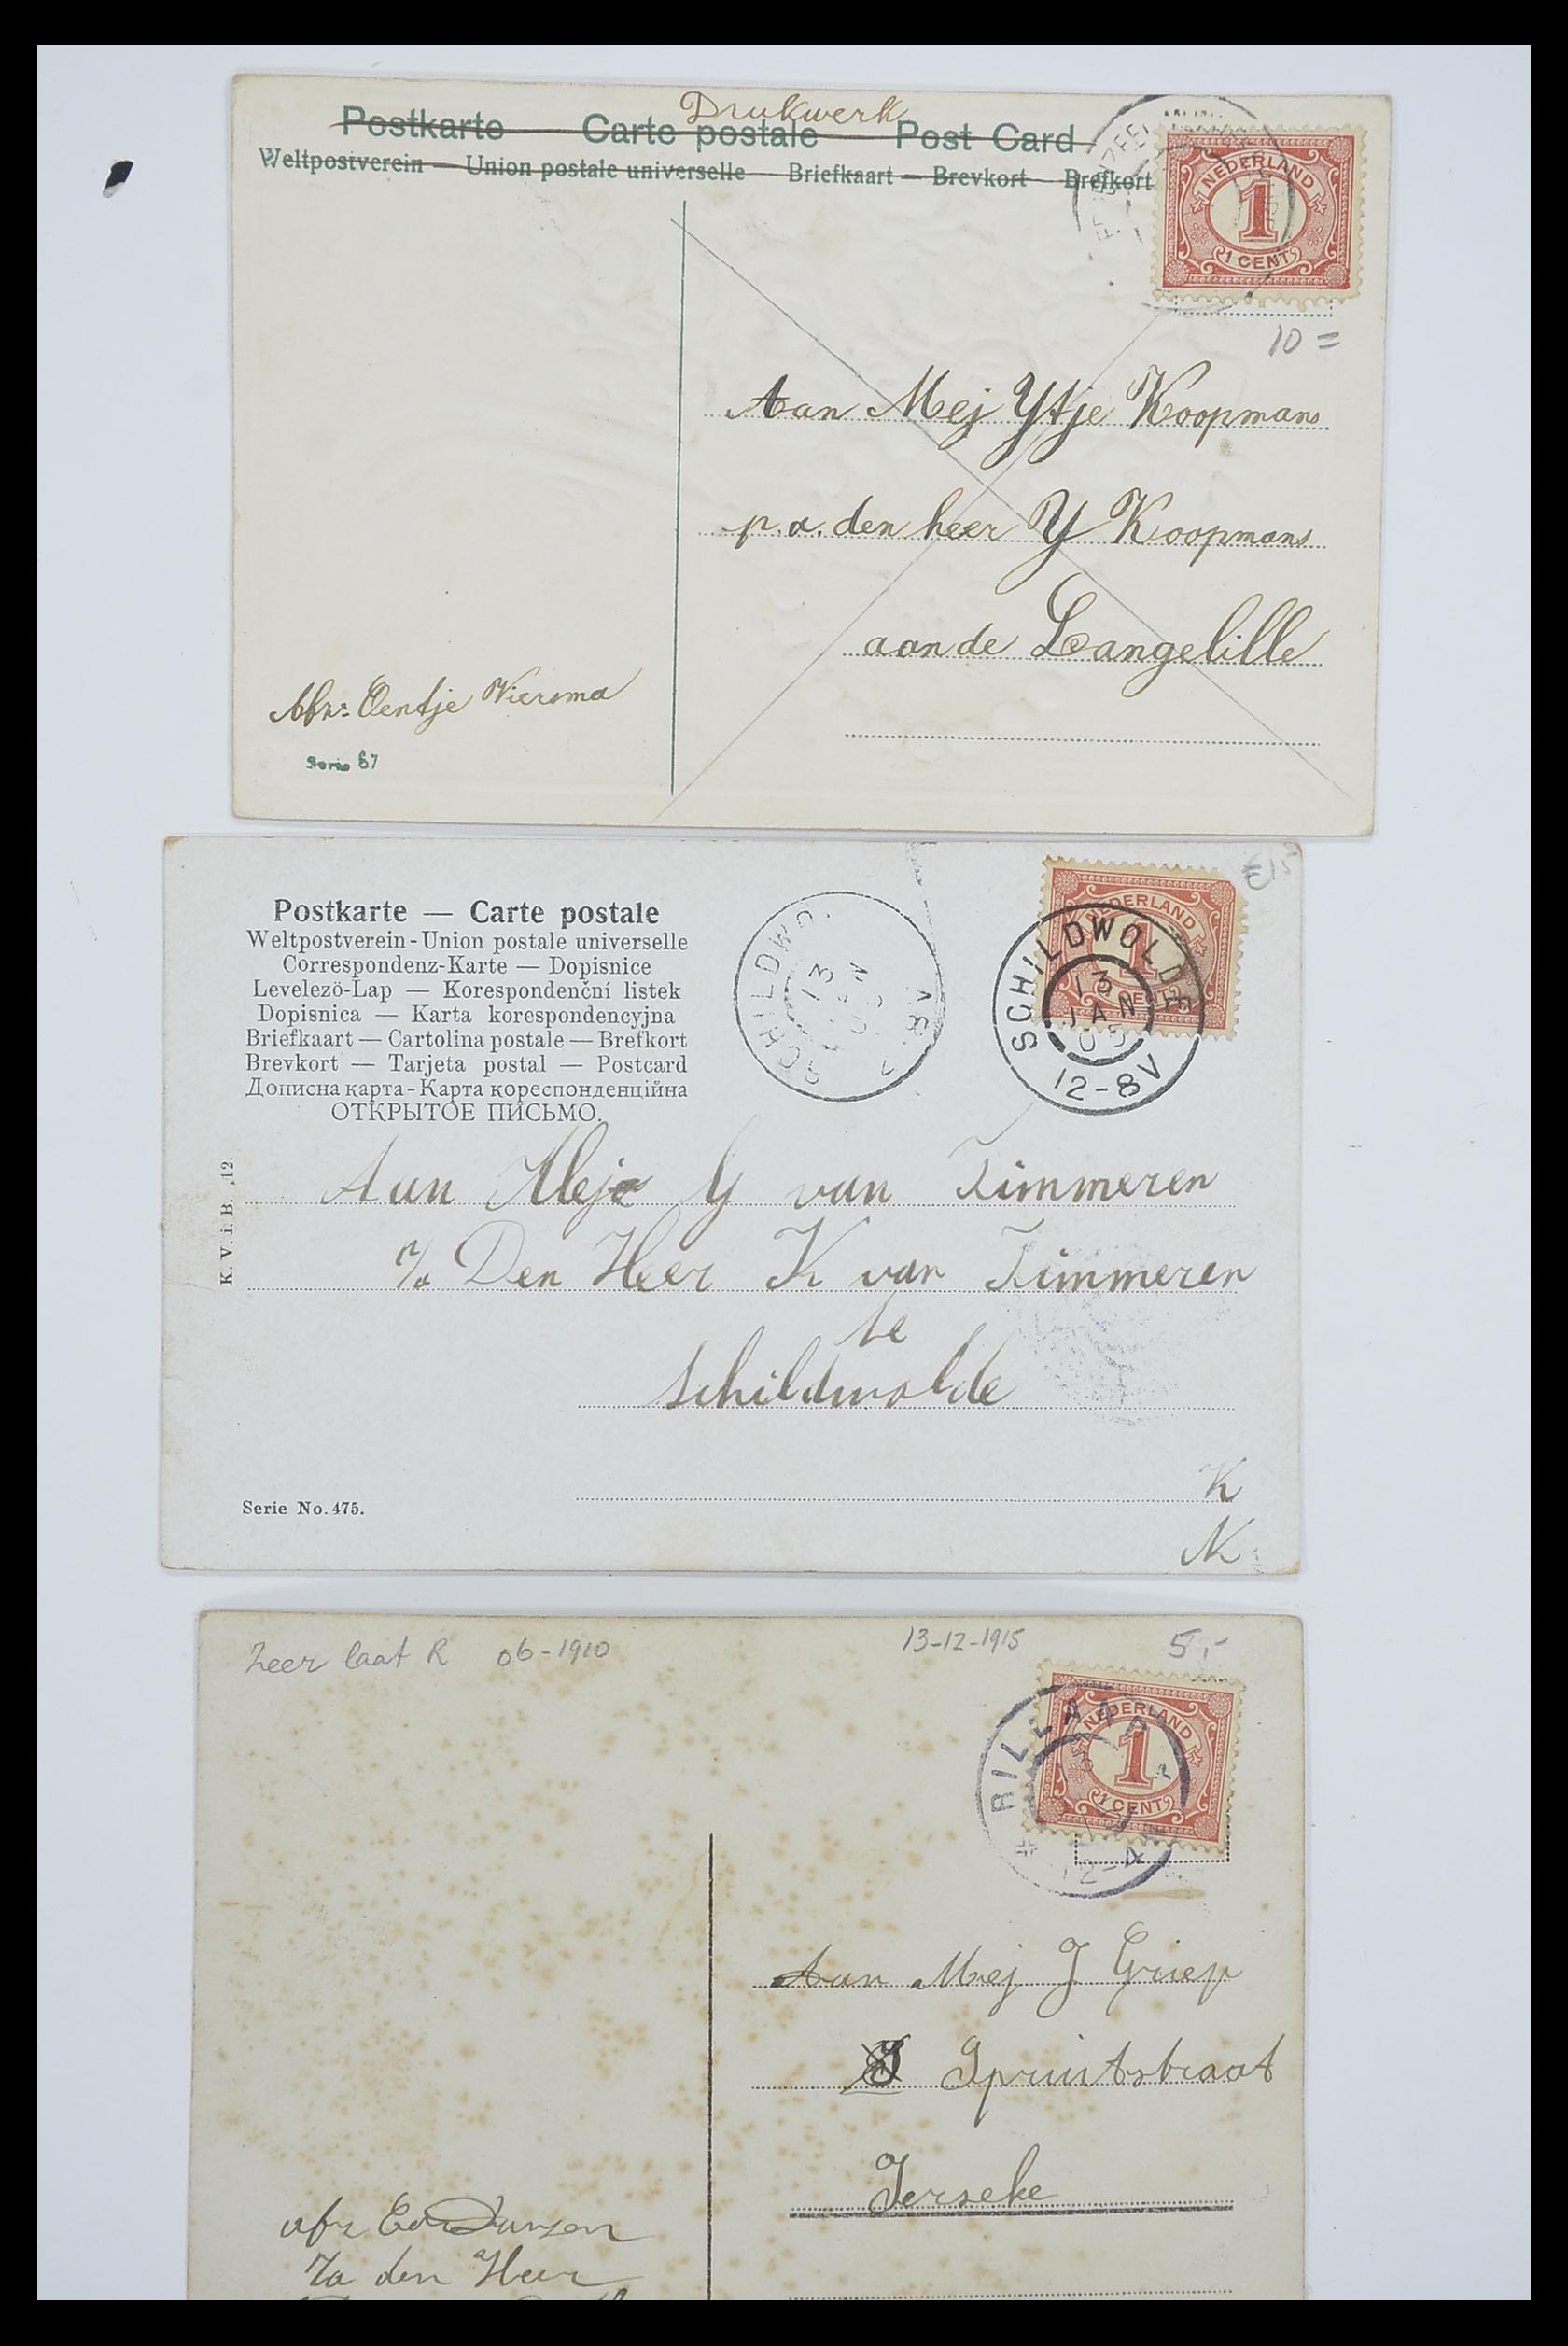 Drukwerk
Postkarte Carte postale Post Card
Weltpostverein — Union postale universelle — Briefkaart — Brevkort — Brefkort
NEDERLAND
1
1 CENT
10 =
Aan Mej Ytje Koopmans
p.a. den heer Y Koopmans
aan de Langelille
Afz: Oentje Wiersma
Serie 67
€15
Postkarte — Carte postale
Weltpostverein - Union postale universelle
Correspondenz-Karte — Dopisnice
Levelező-Lap — Korespondenční listek
Dopisnica — Karta korespondencyjna
Briefkaart — Cartolina postale — Brefkort
Brevkort — Tarjeta postal — Postcard
Дописна карта - Карта кореспонденційна
ОТКРЫТОЕ ПИСЬМО.
SCHILDWO
13
NEDERLAND
1
SCHILDWOLDE
13
JAN
05
12-8V
K. V. i. B. 12.
Aan Mej G van Timmeren
p/a Den Heer K van Timmeren
te
Schildwolde
Serie No. 475.
K
N
Zeer laat R 06-1910
13-12-1915
5,-
NEDERLAND
1
1 CENT
RILLAND
12-4
Aan Mej J Griep
Spruitstraat
Ierseke
afz
p/a den Heer